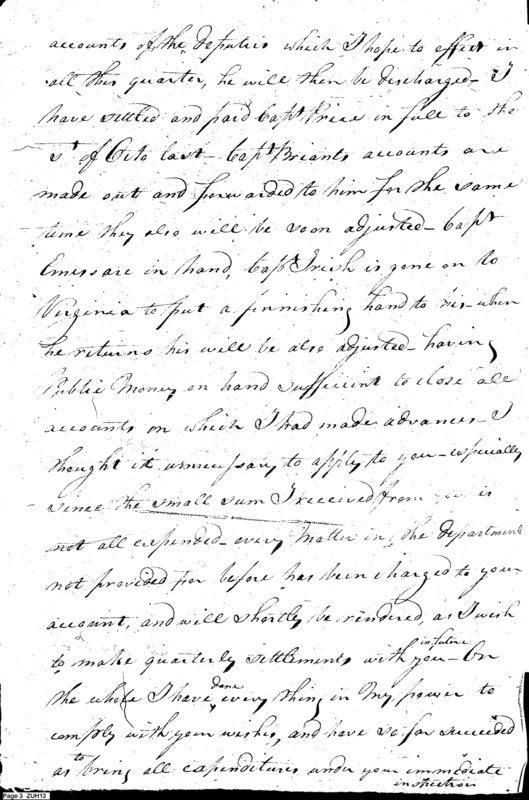 accounts of the deputies which I hope to effect in
all this quarter, he will then be discharged - I
have settled and paid Capt Price in full to the
1st of Octo last - Capt Briants accounts are
made out and forwarded to him for the same
time they also will be soon adjusted - Capt
Emes are in hand, Capt Irish is gone on to
Virginia to put a finnishing hand to his - when
he returns his will be also adjusted - having
Public Money on hand sufficient to close all
accounts on which I had made advances - I
thought it unnecessary to apply to you - especially
since the small sum I received from you is
not all expended - every matter in the department
not provided for before has been charged to your
account, and will shortly be rendered, as I wish
to make quarterly settlements with you in future - On
the whole I have done every thing in my power to
comply with your wishes, and have so far succeeded
as to bring all expenditures under your immediate
inspection
Page 3 ZUH13